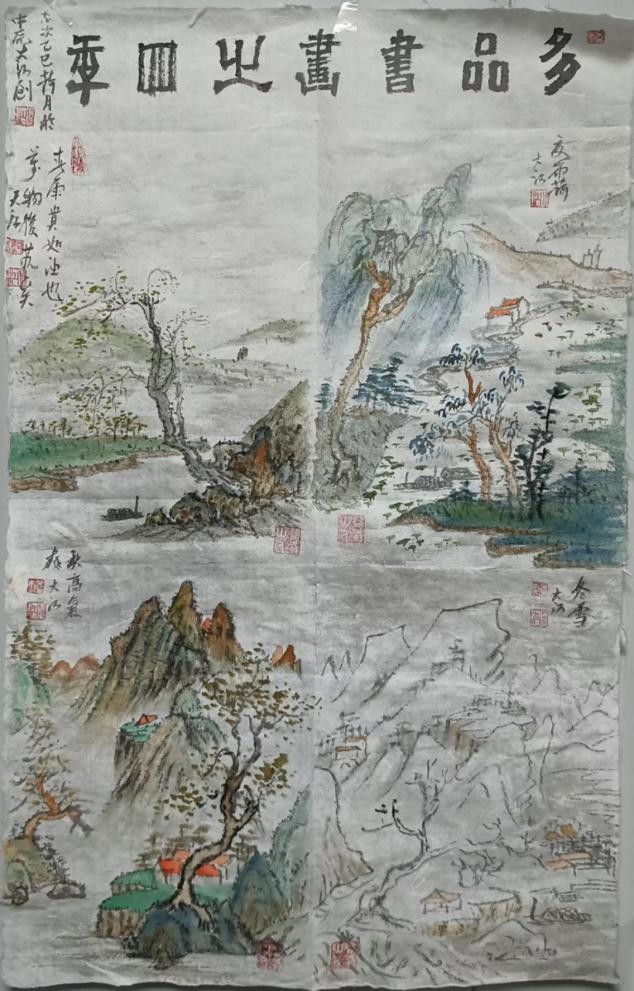 多品書畫之四季
中院大江創
春雨貴如油也
萬物復蘇矣
大江
夏雨荷
大江
秋高氣
爽大江
冬雪
大江